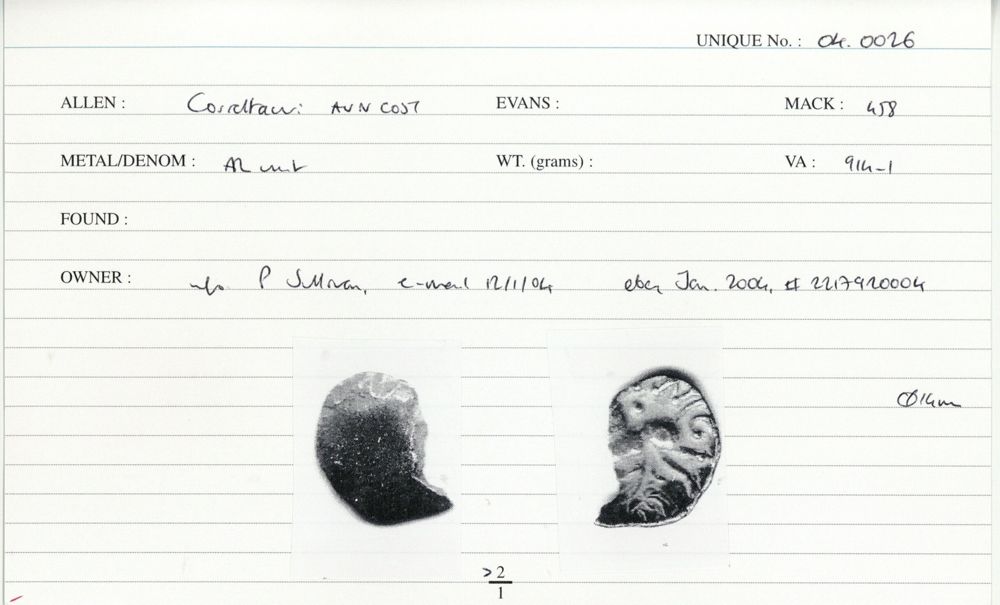 UNIQUE No. : 04. 0026
ALLEN : Corieltauvi AVN COST EVANS : MACK : 458
METAL/DENOM : AR unit WT. (grams) : VA : 914-1
FOUND :
OWNER : info P Sullivan, e-mail 12/1/04 ebay Jan. 2004, # 2217920004
Ø14mm
>2
1